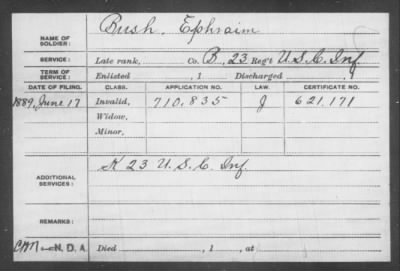 NAME OF SOLDIER: Bush, Ephraim
SERVICE: Late rank, Co. B, 23 Reg't U.S.C. Inf.
TERM OF SERVICE: Enlisted , 1 Discharged , 1
DATE OF FILING. CLASS. APPLICATION NO. LAW. CERTIFICATE NO.
1889, June 17 Invalid, 710,835 J 621,171
Widow,
Minor,
ADDITIONAL SERVICES: K 23 U.S.C. Inf.
REMARKS:
N. D. A Died , 1 , at